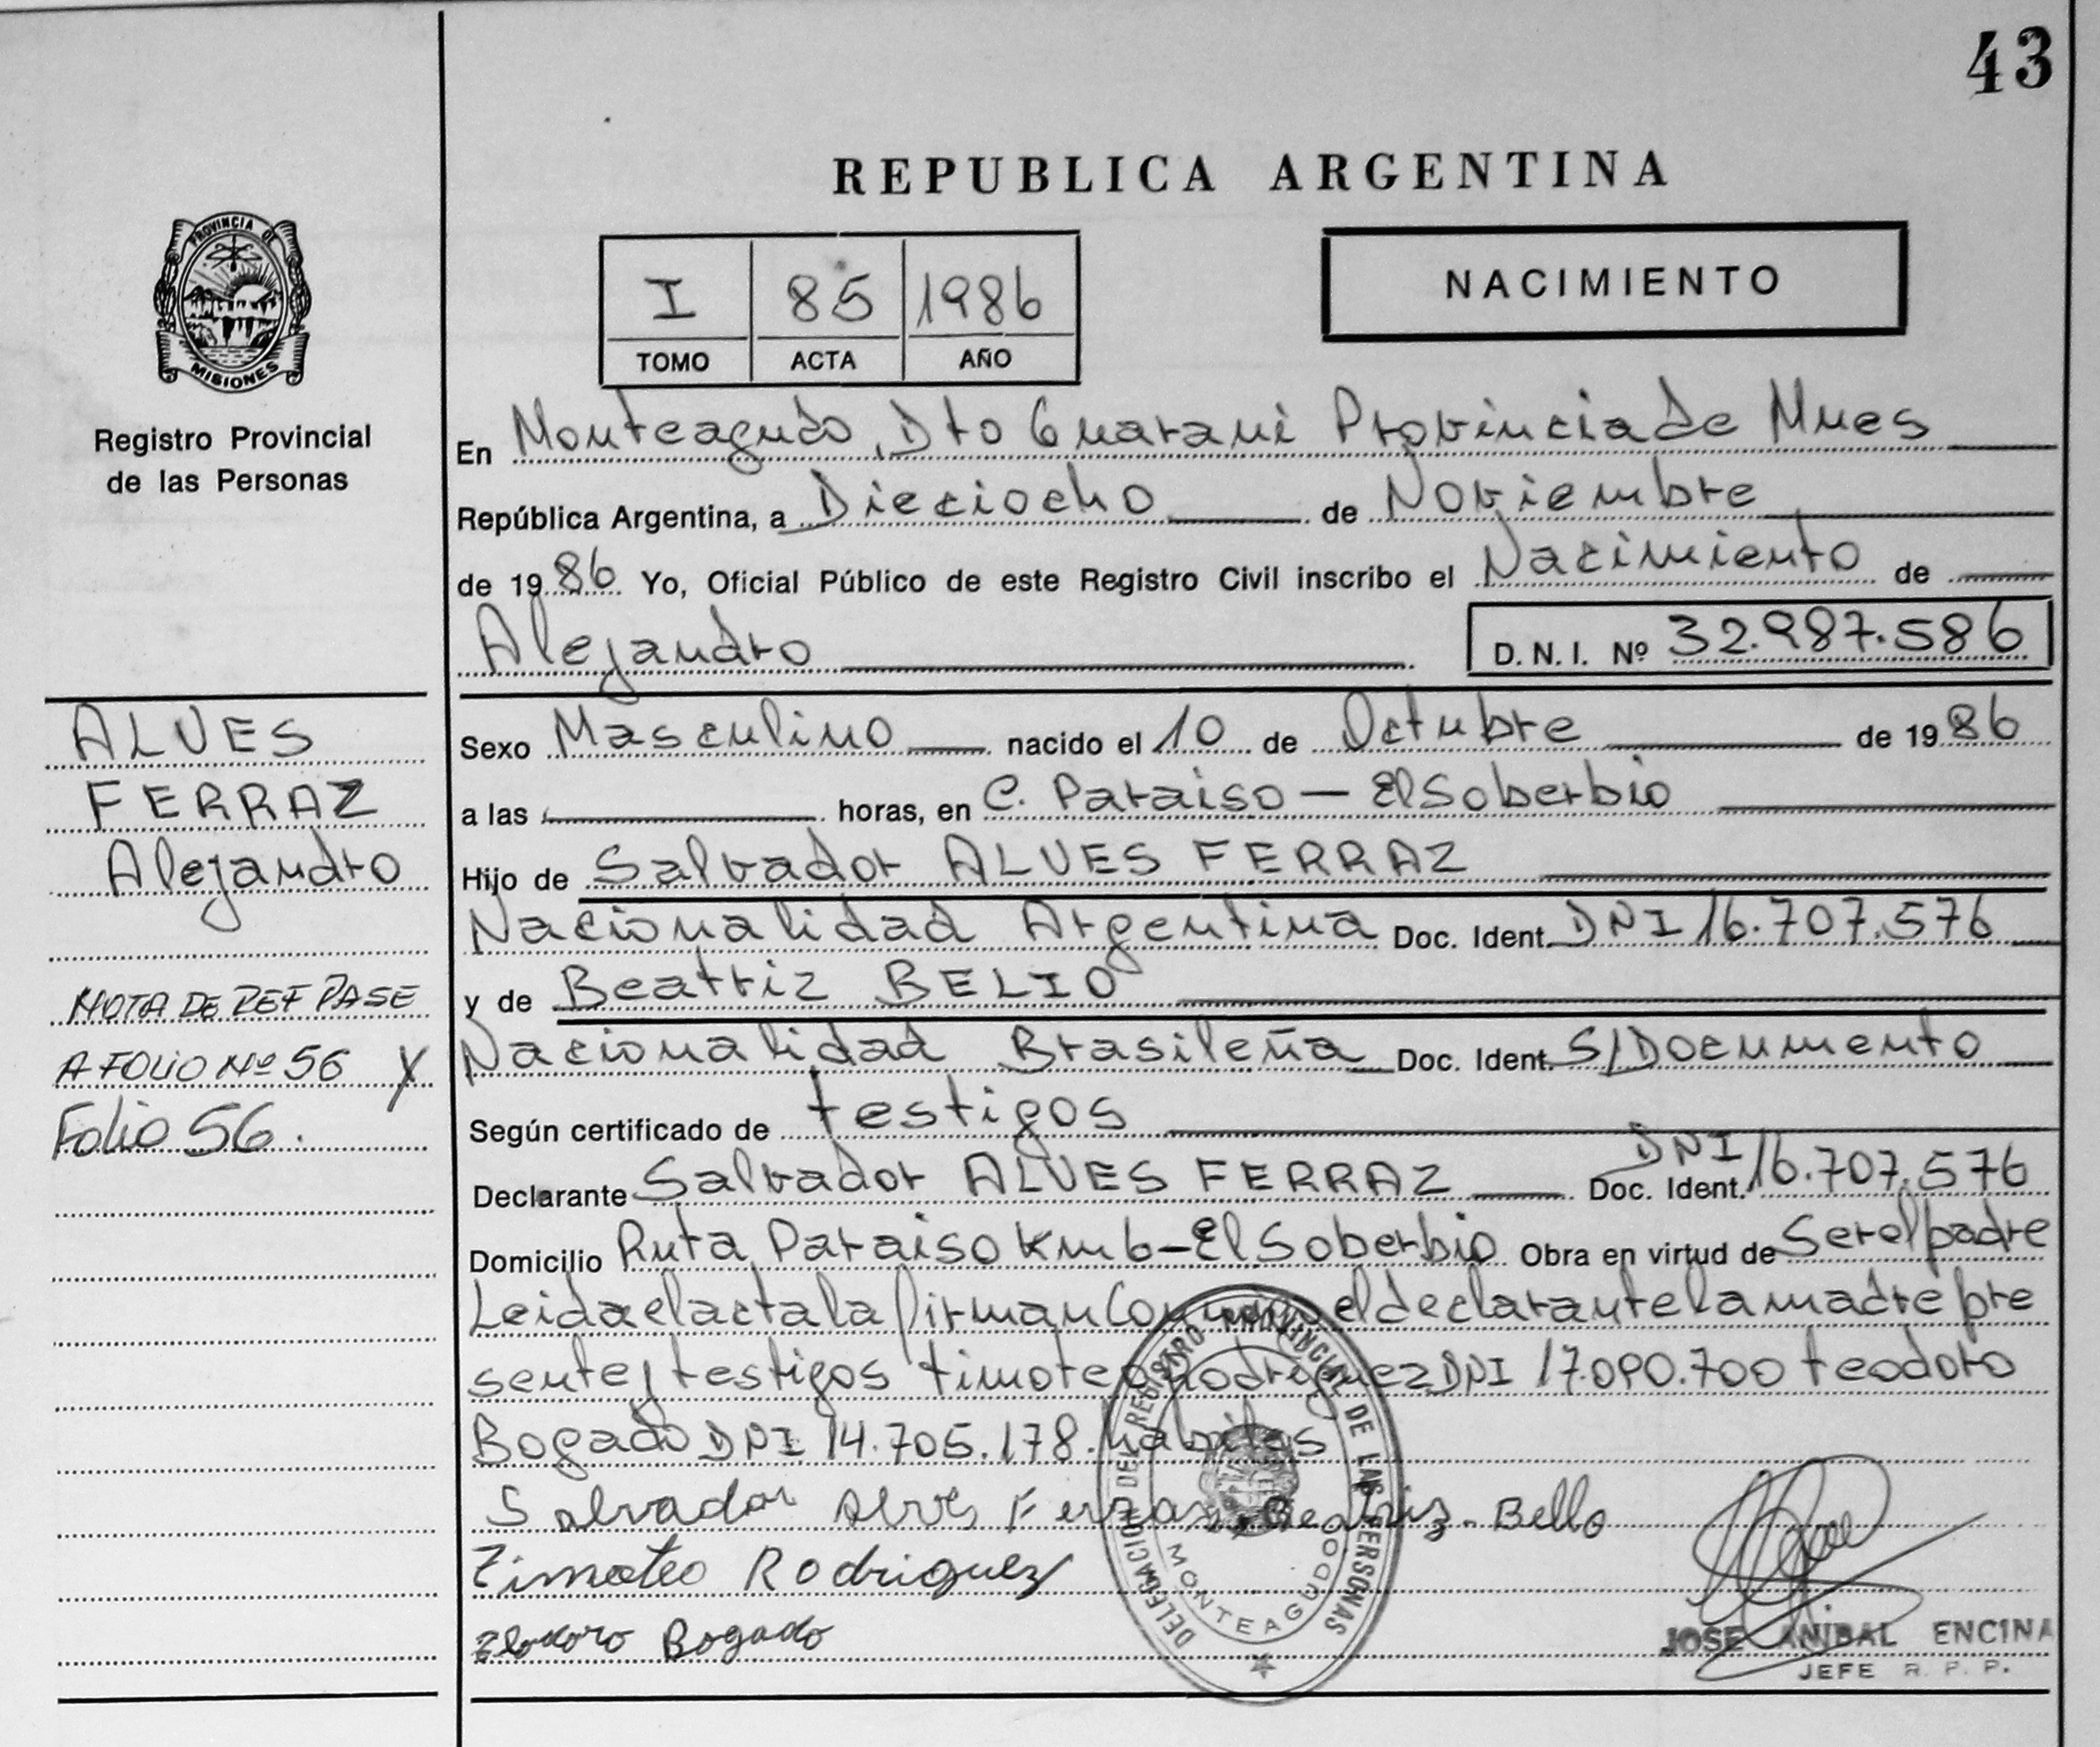 43
REPUBLICA ARGENTINA
PROVINCIA DE
MISIONES
Registro Provincial
de las Personas
I 85 1986
TOMO ACTA AÑO
NACIMIENTO
En Monteagudo, Dto Guarani Provincia de Mnes
República Argentina, a Dieciocho de Noviembre
de 1986 Yo, Oficial Público de este Registro Civil inscribo el Nacimiento de
Alejandro D. N. I. Nº 32.987.586
ALVES
FERRAZ
Alejandro
NOTA DE REF PASE
A FOLIO Nº 56 Y
Folio 56.
Sexo Masculino nacido el 10 de Octubre de 1986
a las horas, en C. Paraiso - El Soberbio
Hijo de Salvador ALVES FERRAZ
Nacionalidad Argentina Doc. Ident. DNI 16.707.576
y de Beatriz BELIO
Nacionalidad Brasileña Doc. Ident. S/Documento
Según certificado de testigos
Declarante Salvador ALVES FERRAZ Doc. Ident. DNI 16.707.576
Domicilio Ruta Paraiso Km 6 - El Soberbio Obra en virtud de Ser el padre
Leida el acta la firman Conmigo el declarante la madre pre
sente y testigos timoteo Rodriguez DNI 17.090.700 teodoro
Bogado DNI 14.705.178. habiles
Salvador Alves Ferraz. Beatriz. Bello
Timoteo Rodriguez
Bogado
DELEGACION DEL REGISTRO PROVINCIAL DE LAS PERSONAS
MONTEAGUDO
JOSE ANIBAL ENCINA
JEFE R. P. P.